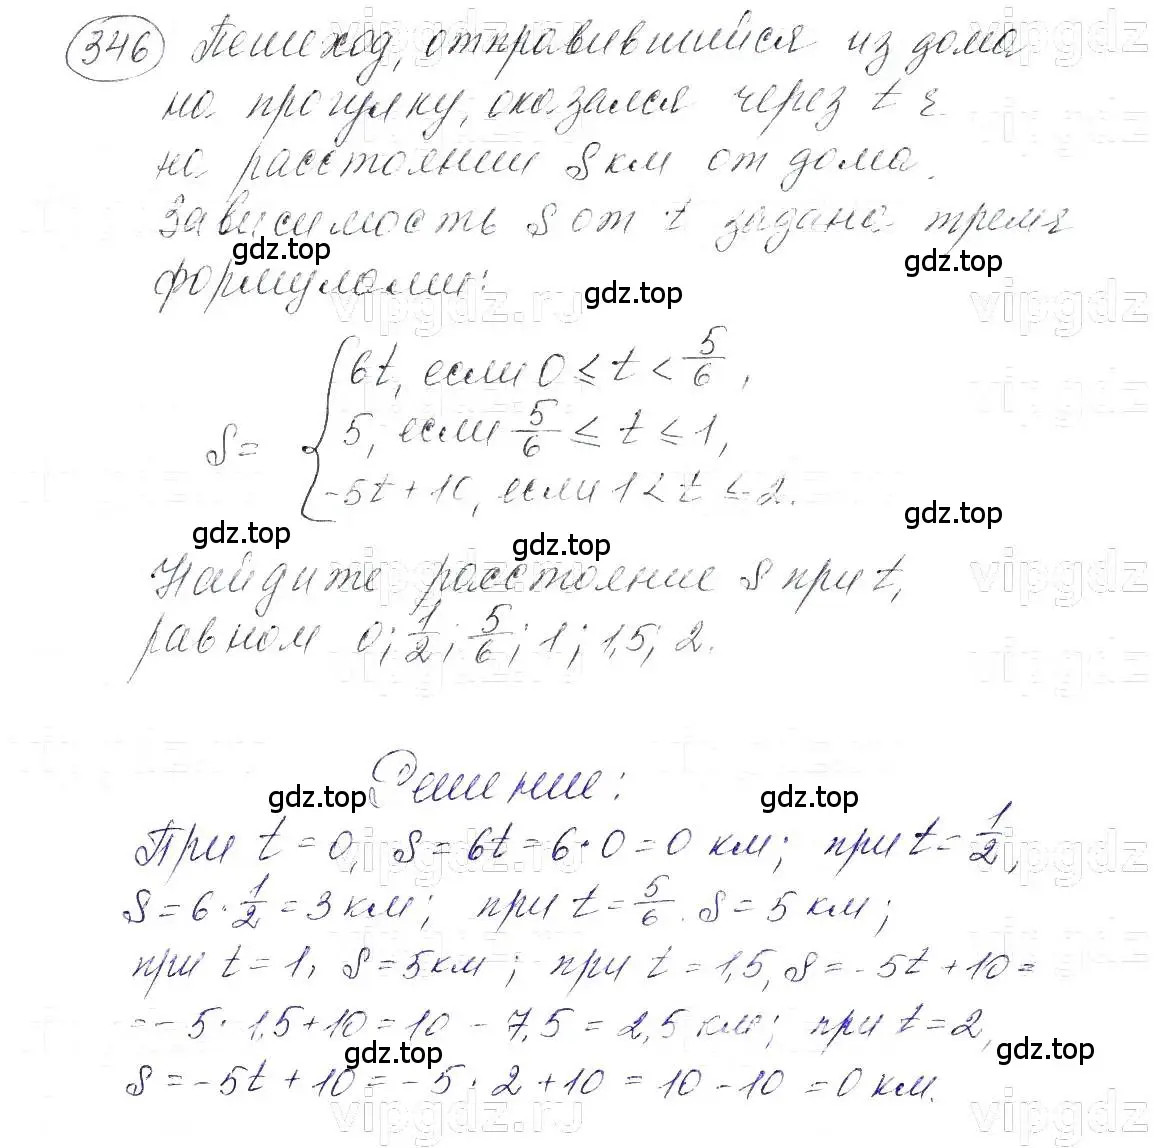 346 Пешеход, отправившийся из дома
на прогулку, оказался через t ч
на расстоянии S км от дома.
Зависимость S от t задана тремя
формулами:
6t, если 0 ≤ t < 5/6,
S = { 5, если 5/6 ≤ t ≤ 1,
-5t + 10, если 1 < t ≤ 2.
Найдите расстояние S при t,
равном 0; 1/2; 5/6; 1; 1,5; 2.
Решение:
При t = 0, S = 6t = 6·0 = 0 км; при t = 1/2,
S = 6·1/2 = 3 км; при t = 5/6. S = 5 км;
при t = 1, S = 5 км; при t = 1,5, S = -5t + 10 =
= -5·1,5 + 10 = 10 - 7,5 = 2,5 км; при t = 2,
S = -5t + 10 = -5·2 + 10 = 10 - 10 = 0 км.
gdz.top
gdz.top
gdz.top
gdz.top
gdz.top
gdz.top
gdz.top
gdz.top
gdz.top
gdz.top
vipgdz.ru